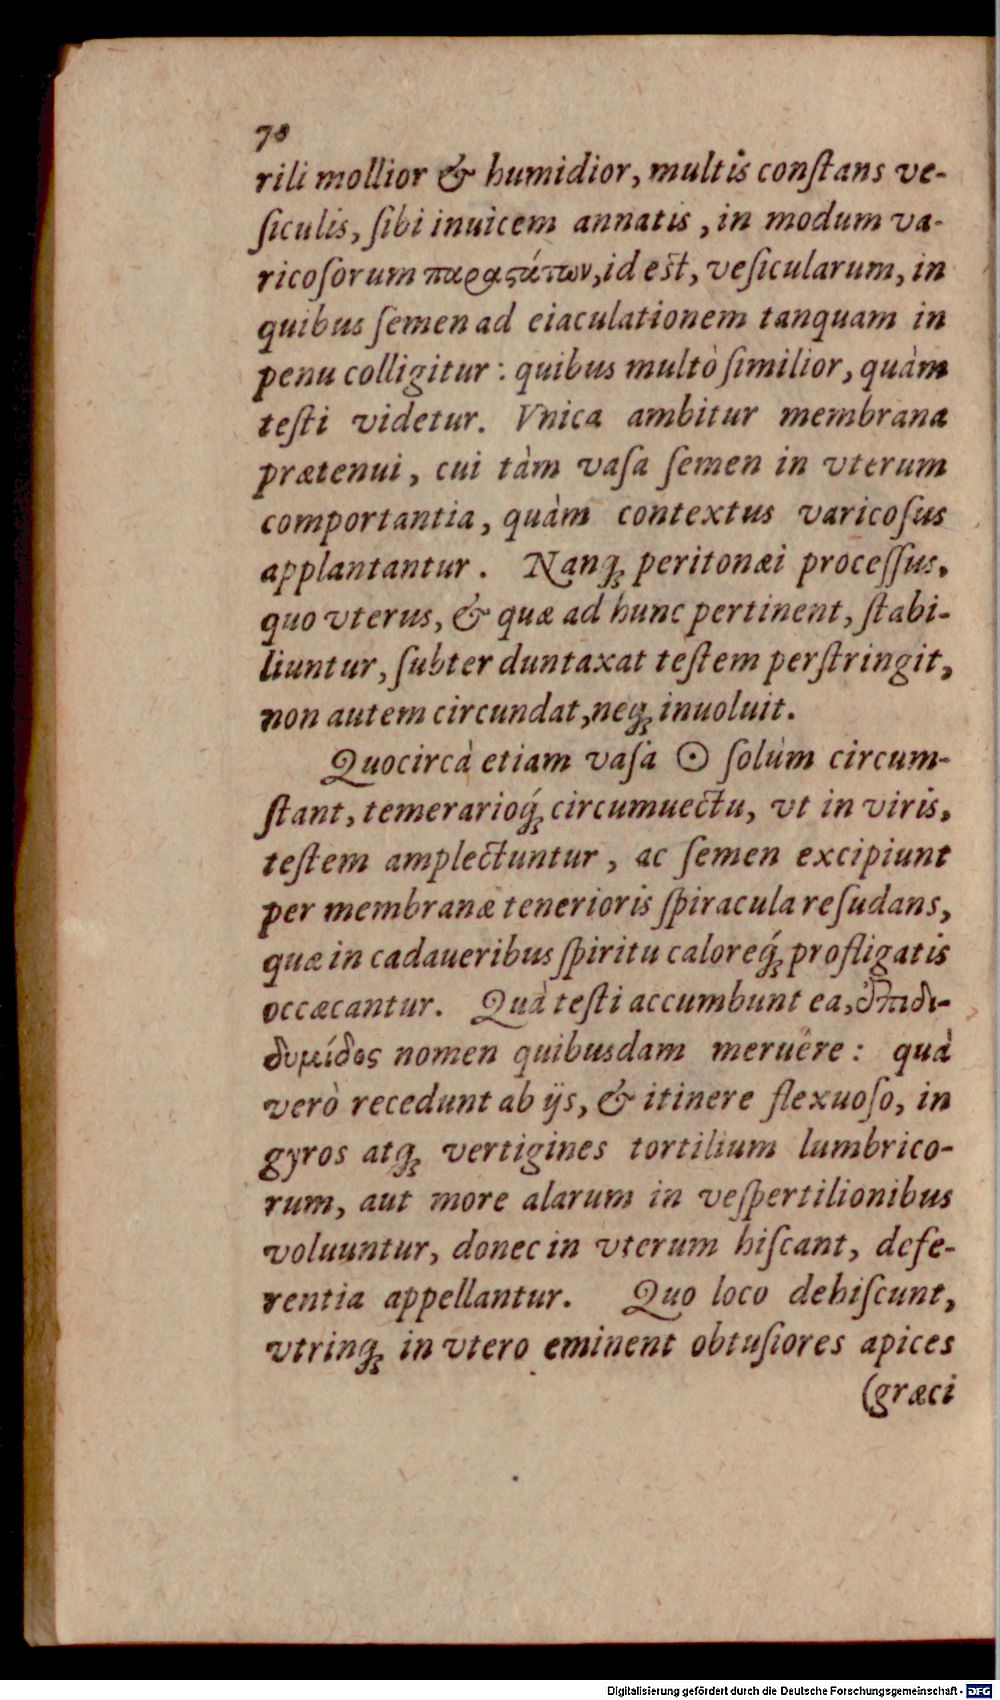 70
rili mollior & humidior, multis conſtans ve-
ſiculis, ſibi inuicem annatis, in modum va-
ricoſorum παραςάτων, id eſt, veſicularum, in
quibus ſemen ad eiaculationem tanquam in
penu colligitur: quibus multò ſimilior, quàm
teſti videtur. Vnica ambitur membrana
prætenui, cui tàm vaſa ſemen in vterum
comportantia, quàm contextus varicoſus
applantantur. Nanq; peritonæi proceſſus,
quo vterus, & quæ ad hunc pertinent, ſtabi-
liuntur, ſubter duntaxat teſtem perſtringit,
non autem circundat, neq; inuoluit.
Quocircà etiam vaſa ☉ ſolùm circum-
ſtant, temerarioq́; circumuectu, vt in viris,
teſtem amplectuntur, ac ſemen excipiunt
per membranæ tenerioris ſpiracula reſudans,
quæ in cadaueribus ſpiritu caloreq́; profligatis
occæcantur. Quà teſti accumbunt ea, ἐπιδι-
δυμίδος nomen quibusdam meruêre: quà
verò recedunt ab ijs, & itinere flexuoſo, in
gyros atq; vertigines tortilium lumbrico-
rum, aut more alarum in veſpertilionibus
voluuntur, donec in vterum hiſcant, defe-
rentia appellantur. Quo loco dehiſcunt,
vtrinq; in vtero eminent obtuſiores apices
(græci
Digitalisierung gefördert durch die Deutsche Forschungsgemeinschaft - DFG